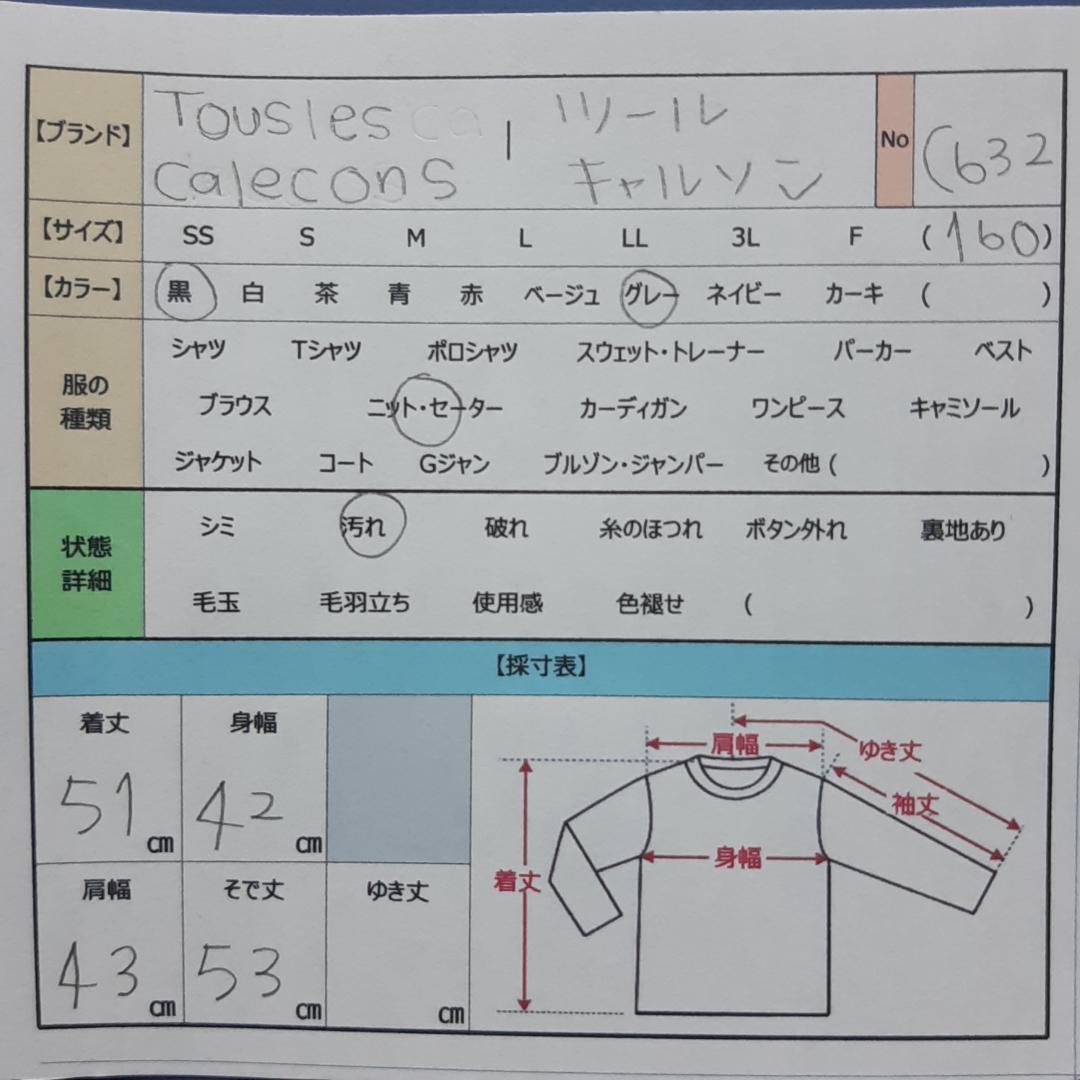 【ブランド】 Tousles ca | ツール No (632
calecons キャルソン
【サイズ】 SS S M L LL 3L F (160)
【カラー】 黒 白 茶 青 赤 ベージュ グレー ネイビー カーキ ( )
服の種類 シャツ Tシャツ ポロシャツ スウェット・トレーナー パーカー ベスト
ブラウス ニット・セーター カーディガン ワンピース キャミソール
ジャケット コート Gジャン ブルゾン・ジャンパー その他 ( )
状態詳細 シミ 汚れ 破れ 糸のほつれ ボタン外れ 裏地あり
毛玉 毛羽立ち 使用感 色褪せ ( )
【採寸表】
着丈 身幅
51 cm 42 cm
肩幅 そで丈 ゆき丈
43 cm 53 cm cm
肩幅 ゆき丈
袖丈
身幅
着丈